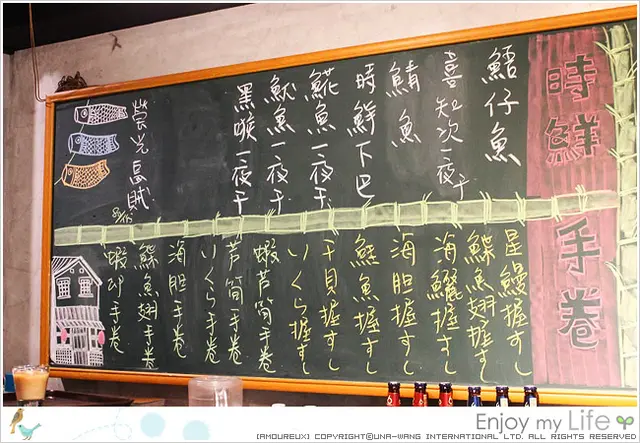 時鮮手卷
仔魚
喜知次一夜干
鯖魚
時鮮下巴
𩸽魚一夜干
魷魚一夜干
黑喉一夜干
螢光烏賊
星鰻握すし
鰈魚翅握すし
海鱺握すし
海胆握すし
鮭魚握すし
干貝握すし
いくら握すし
蝦芦筍手卷
芦筍手卷
いくら手卷
海胆手卷
鰈魚翅手卷
蝦卵手卷
Enjoy my Life
[AMOUREUX] COPYRIGHT@UNA-WANG INTERNATIONAL LTD. ALL RIGHTS RESERVED